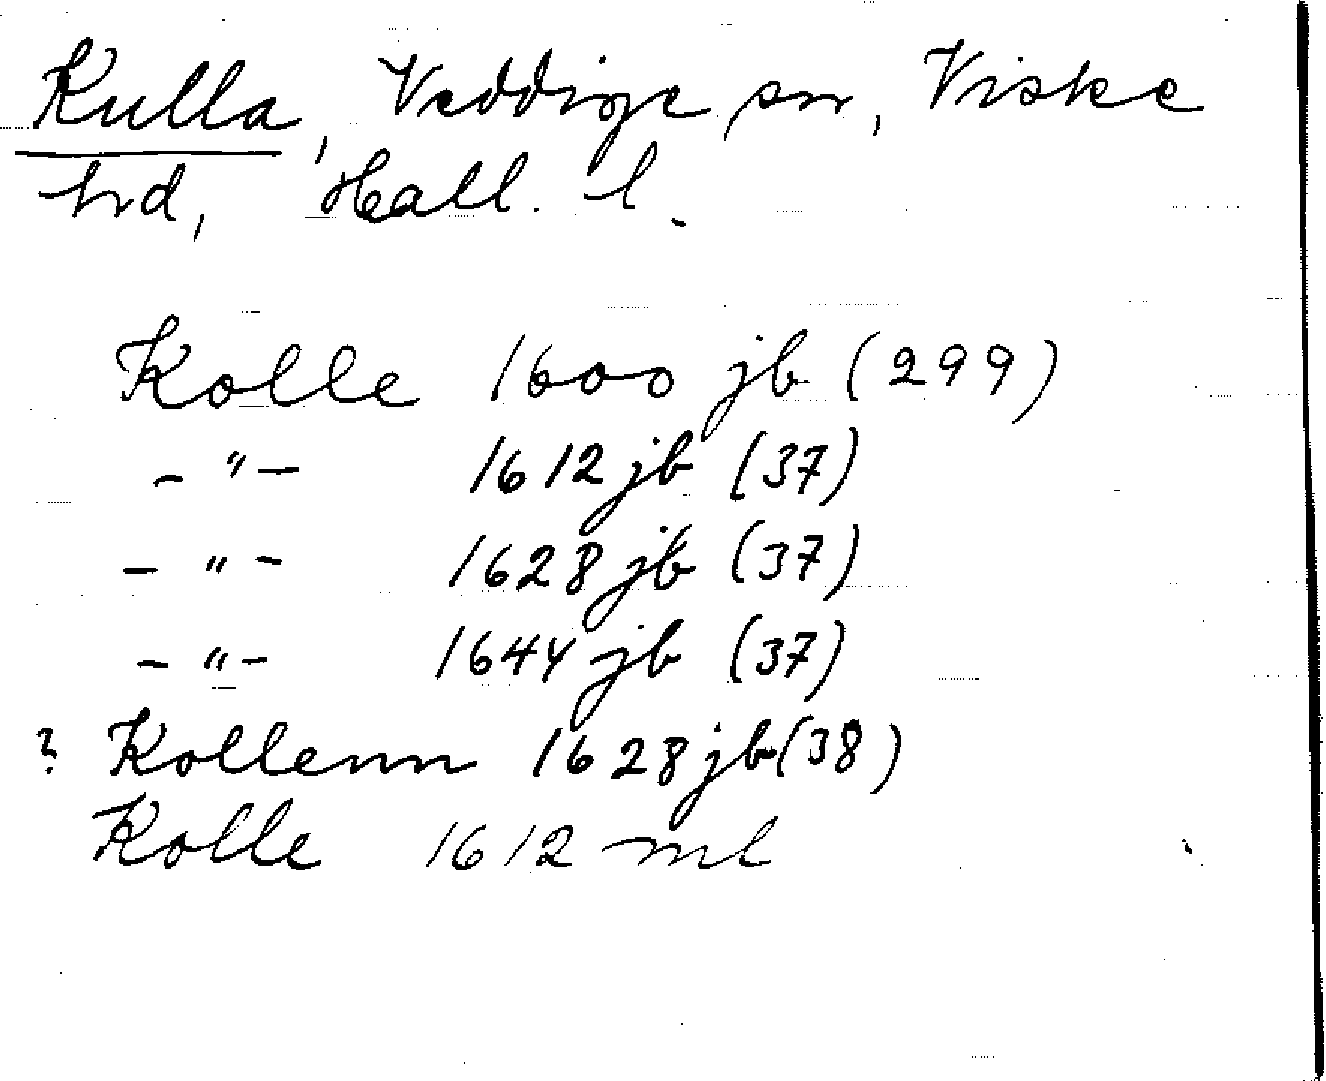 Kulla, Veddige sn, Viske
hd, Hall. l.
Kolle 1600 jb (299)
- " - 1612 jb (37)
- " - 1628 jb (37)
- " - 1644 jb (37)
? Kollenn 1628 jb (38)
Kolle 1612 ml